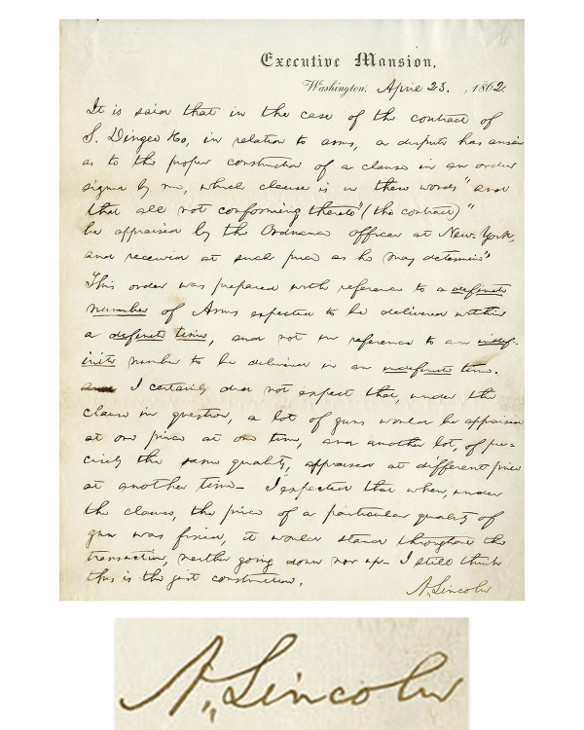 Executive Mansion,
Washington, April 23, 1862
It is said that in the case of the contract of
S. Dingee &Co, in relation to arms, a dispute has arisen
as to the proper construction of a clause in an order
signed by me, which clause is in these words "and
that all not conforming thereto" (the contract) "
be appraised by the Ordnance officer at New-York,
and received at such price as he may determine"
This order was prepared with reference to a definite
number of Arms expected to be delivered within
a definite time, and not in reference to an indef-
inite number to be delivered in an indefinite time.
I certainly did not expect that, under the
clause in question, a lot of guns would be appraised
at one price at one time, and another lot, of pre-
cisely the same quality, appraised at different price
at another time— I expected that when, under
the clause, the price of a particular quality of
gun was fixed, it would stand throughout the
transaction, neither going down nor up— I still think
this is the just construction.
A. Lincoln
A. Lincoln